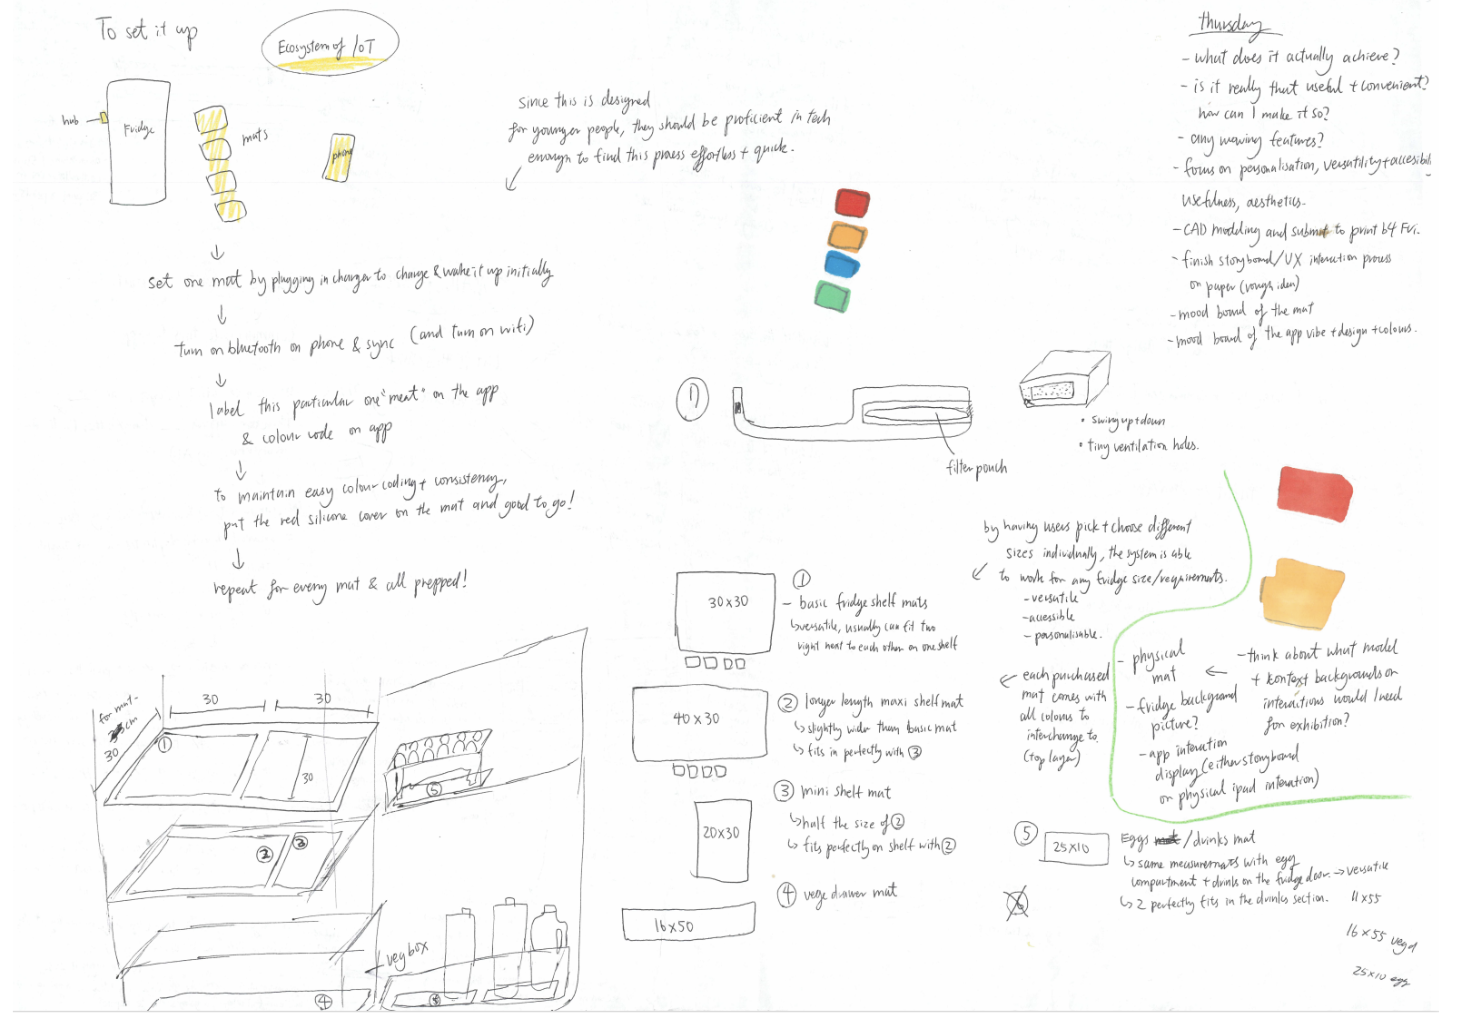 To set it up
Ecosystem of IoT
hub
Fridge
mats
phone
since this is designed
for younger people, they should be proficient in tech
enough to find this process effortless + quick.
set one mat by plugging in charger to charge & wake it up initially
turn on bluetooth on phone & sync (and turn on wifi)
label this particular one "meat" on the app
& colour code on app
to maintain easy colour coding + consistency,
put the red silicone cover on the mat and good to go!
repeat for every mat & all prepped!
thursday
- what does it actually achieve?
- is it really that useful + convenient?
how can I make it so?
- any wowing features?
- focus on personalisation, versatility + accessibili
usefulness, aesthetics.
- CAD modelling and submit to print b4 Fri.
- finish storyboard/UX interaction process
on paper (rough idea)
- mood board of the mat
- mood board of the app vibe + design + colours.
1)
filter pouch
• swing up + down
• tiny ventilation holes.
by having users pick + choose different
sizes individually, the system is able
to work for any fridge size/requirements.
- versatile
- accessible
- personalisable.
each purchased
mat comes with
all colours to
interchange to.
(top layer)
- physical
mat
- fridge background
picture?
- app interaction
display (either storyboard
or physical ipad interation)
- think about what model
+ context backgrounds or
interactions would I need
for exhibition?
30x30
①
- basic fridge shelf mats
↳ versatile, usually can fit two
right next to each other on one shelf
40x30
② longer length maxi shelf mat
↳ slightly wider than basic mat
↳ fits in perfectly with ③
20x30
③ mini shelf mat
↳ half the size of ②
↳ fits perfectly on shelf with ②
④ vege drawer mat
16x50
⑤
25x10
Eggs /drinks mat
↳ same measurements with egg
compartment + drinks on the fridge door. → versatile
↳ 2 perfectly fits in the drinks section.
11x55
16x55 veg
25x10 egg
for mat-
cm
30
30
30
30
①
②
③
⑤
veg box
④